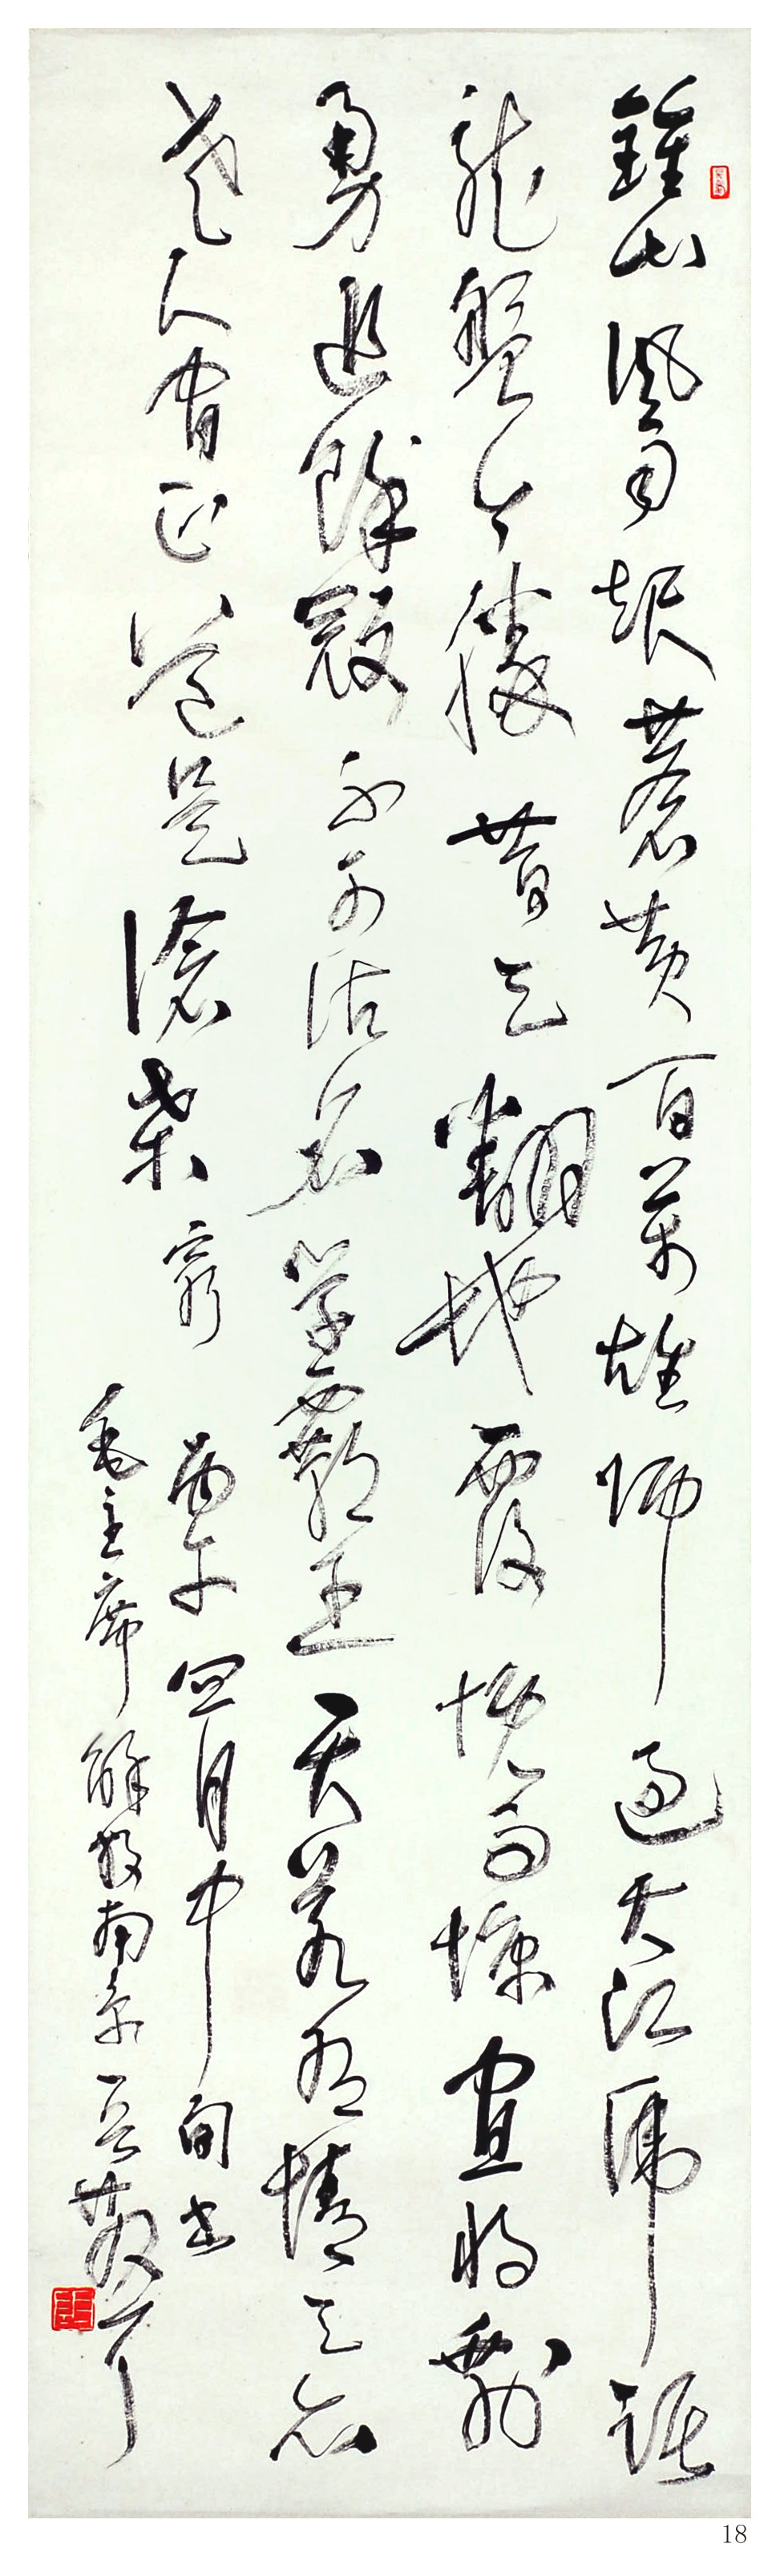 鍾山風雨起蒼黃百萬雄師過大江虎踞
龍盤今勝昔天翻地覆慨而慷宜將剩
勇追餘寇不可沽名學霸王天若有情天亦
老人間正道是滄桑 窮 丙午四月中旬書
毛主席解放南京
18